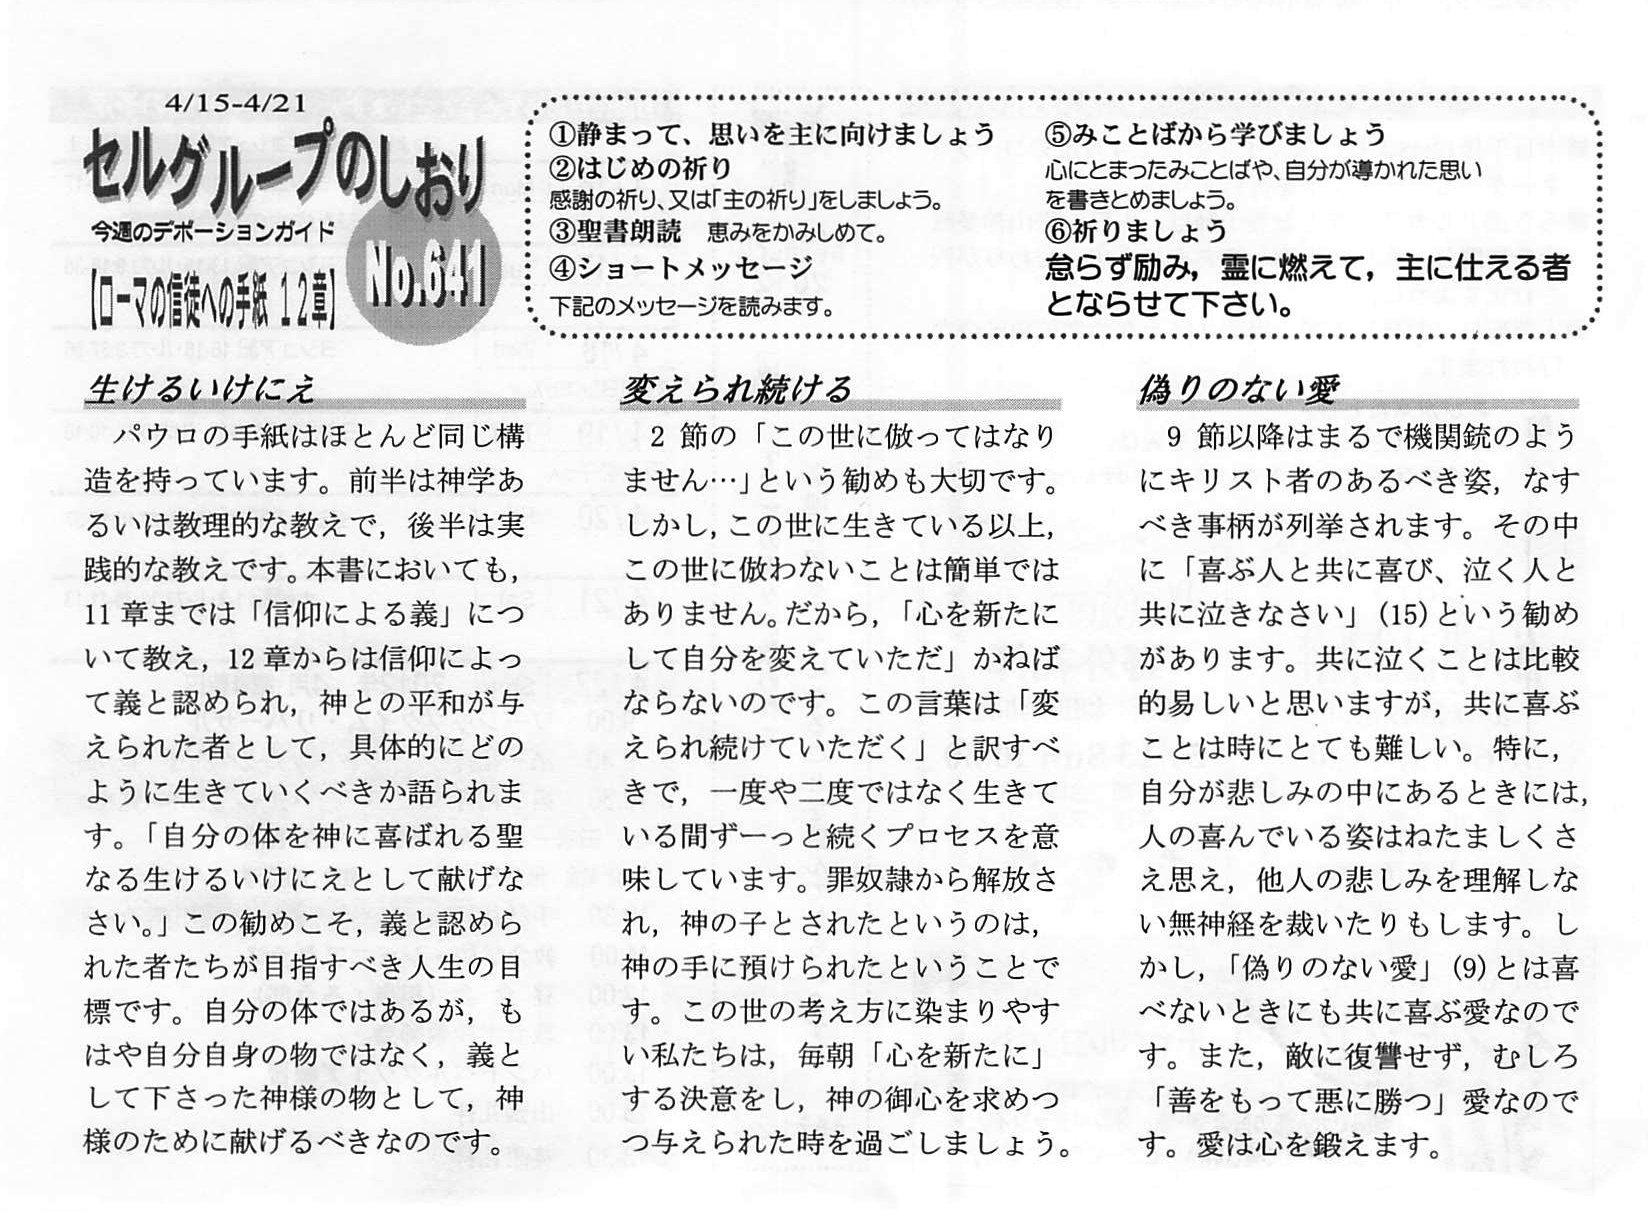 4/15-4/21
セルグループのしおり
今週のデボーションガイド
No.641
【ローマの信徒への手紙 12章】
①静まって、思いを主に向けましょう
②はじめの祈り
感謝の祈り、又は「主の祈り」をしましょう。
③聖書朗読　恵みをかみしめて。
④ショートメッセージ
下記のメッセージを読みます。
⑤みことばから学びましょう
心にとまったみことばや、自分が導かれた思い
を書きとめましょう。
⑥祈りましょう
怠らず励み，霊に燃えて，主に仕える者
とならせて下さい。
生けるいけにえ
パウロの手紙はほとんど同じ構
造を持っています。前半は神学あ
るいは教理的な教えで，後半は実
践的な教えです。本書においても，
11 章までは「信仰による義」につ
いて教え，12 章からは信仰によっ
て義と認められ，神との平和が与
えられた者として，具体的にどの
ように生きていくべきか語られま
す。「自分の体を神に喜ばれる聖
なる生けるいけにえとして献げな
さい。」この勧めこそ，義と認めら
れた者たちが目指すべき人生の目
標です。自分の体ではあるが，も
はや自分自身の物ではなく，義と
して下さった神様の物として，神
様のために献げるべきなのです。
変えられ続ける
2 節の「この世に倣ってはなり
ません…」という勧めも大切です。
しかし，この世に生きている以上，
この世に倣わないことは簡単では
ありません。だから，「心を新たに
して自分を変えていただ」かねば
ならないのです。この言葉は「変
えられ続けていただく」と訳すべ
きで，一度や二度ではなく生きて
いる間ずーっと続くプロセスを意
味しています。罪奴隷から解放さ
れ，神の子とされたというのは，
神の手に預けられたということで
す。この世の考え方に染まりやす
い私たちは，毎朝「心を新たに」
する決意をし，神の御心を求めつ
つ与えられた時を過ごしましょう。
偽りのない愛
9 節以降はまるで機関銃のよう
にキリスト者のあるべき姿，なす
べき事柄が列挙されます。その中
に「喜ぶ人と共に喜び、泣く人と
共に泣きなさい」(15)という勧め
があります。共に泣くことは比較
的易しいと思いますが，共に喜ぶ
ことは時にとても難しい。特に，
自分が悲しみの中にあるときには，
人の喜んでいる姿はねたましくさ
え思え，他人の悲しみを理解しな
い無神経を裁いたりもします。し
かし，「偽りのない愛」(9)とは喜
べないときにも共に喜ぶ愛なので
す。また，敵に復讐せず，むしろ
「善をもって悪に勝つ」愛なので
す。愛は心を鍛えます。